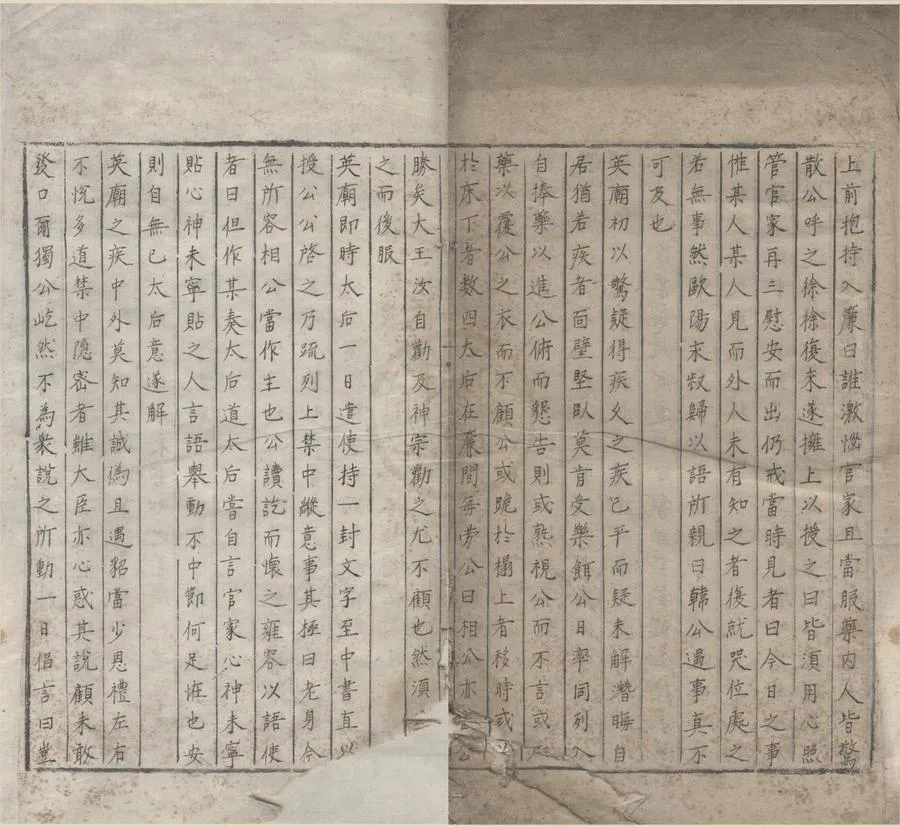 上前抱持入簾曰誰激惱官家且當服藥內人皆驚
散公呼之徐徐復來遂擁上以授之曰皆須用心照
管官家再三慰安而出仍戒當時見者曰今日之事
惟某人某人見而外人未有知之者復就哭位處之
若無事然歐陽永叔歸以語所親曰韓公遇事真不
可及也
英廟初以驚疑得疾久之疾已平而疑未解潛晦自
居猶若疾者面壁堅臥莫肯受藥餌公日率同列入
自捧藥以進公俯而懇告則或熟視公而不言或
藥以覆公之衣而不顧公或跪於榻上者移時或
於床下者數四太后在簾間每勞公曰相公亦公
勝矣大王汝自勸及神宗勸之尤不顧也然須
之而後服
英廟即時太后一日遣使持一封文字至中書直以
授公公啓之乃疏列上禁中縱意事其極曰老身今
無所容相公當作主也公讀訖而懷之雍容以語使
者曰但作某奏太后道太后嘗自言官家心神未寧
貼心神未寧貼之人言語舉動不中節何足恠也安
則自無已太后意遂解
英廟之疾中外莫知其誠偽且遇貂當少恩禮左右
不悅多道禁中隱密者雖大臣亦心惑其說顧未敢
發口爾獨公屹然不為衆說之所動一日倡言曰豈